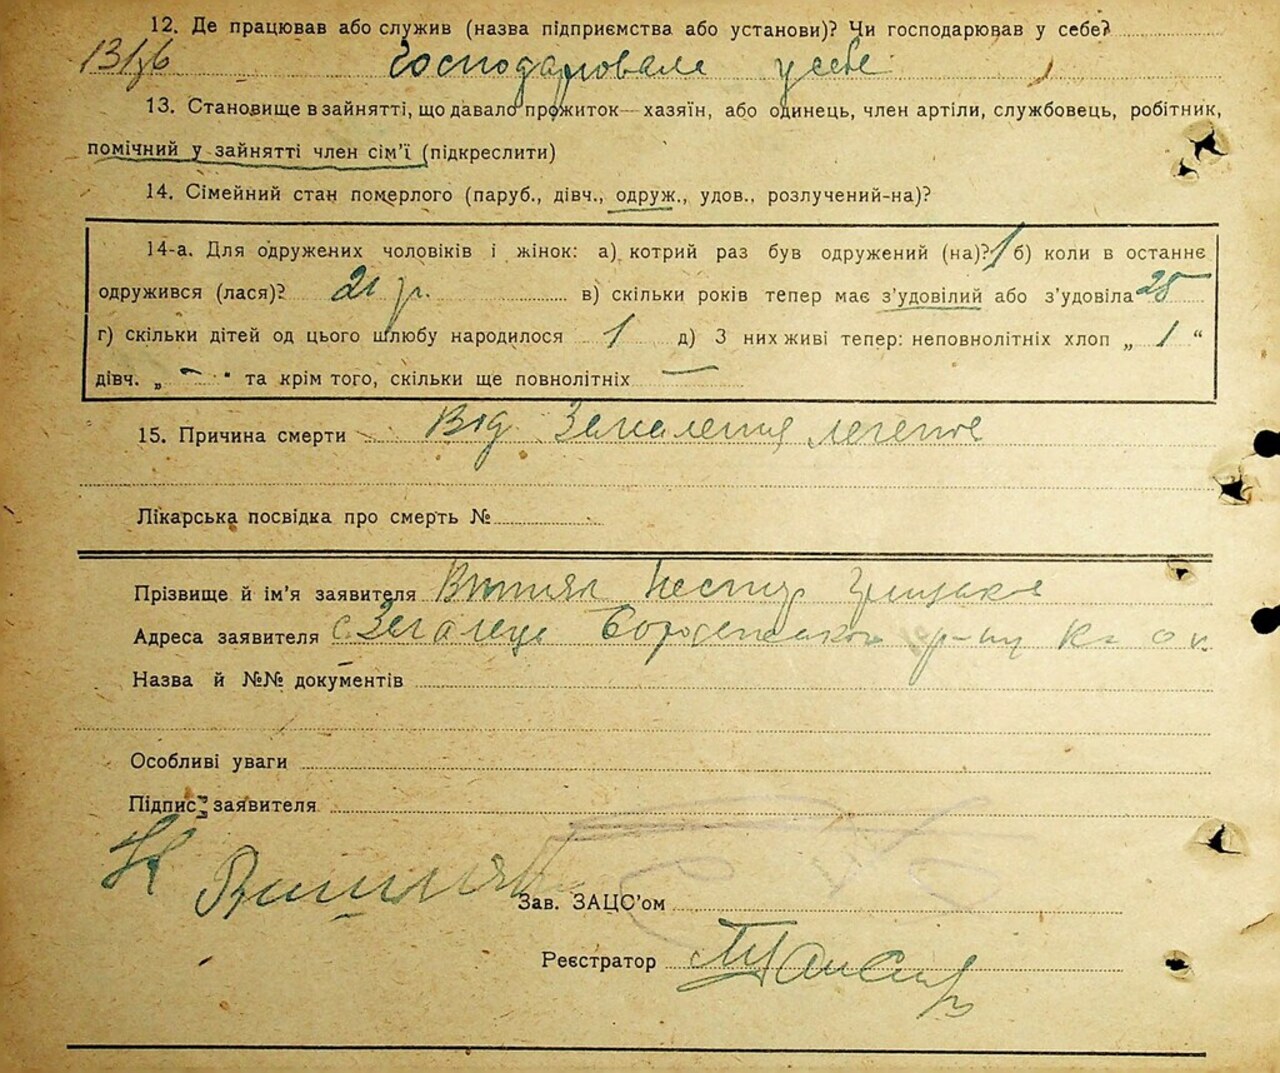 12. Де працював або служив (назва підприємства або установи)? Чи господарював у себе?
Господарювала у себе
13. Становище в зайнятті, що давало прожиток—хазяїн, або одинець, член артіли, службовець, робітник,
помічний у зайнятті член сім'ї (підкреслити)
14. Сімейний стан померлого (паруб., дівч., одруж., удов., розлучений-на)?
14-а. Для одружених чоловіків і жінок: а) котрий раз був одружений (на)? 1 б) коли в останнє
одружився (лася)? 21 р. в) скільки років тепер має з'удовілий або з'удовіла 25
г) скільки дітей од цього шлюбу народилося 1 д) З них живі тепер: неповнолітніх хлоп „ 1 “
дівч. „ - " та крім того, скільки ще повнолітніх —
15. Причина смерти Від Запалення легенів
Лікарська посвідка про смерть №
Прізвище й ім'я заявителя Нестір
Адреса заявителя с. Загальці Бородянського р-ну
Назва й №№ документів
Особливі уваги
Підпис заявителя
Зав. ЗАЦС'ом
Реєстратор